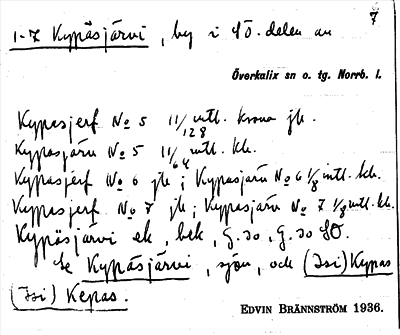 7
1-7 Kypäsjärvi, by i SO. delen av
Överkalix sn o. tg. Norrb. l.
Kypasjerf No 5 11/128 mtl. krono jb.
Kypasjärv No 5 11/64 mtl. kb.
Kypasjerf No 6 jb; Kypasjärv No 6 1/8 mtl. kb.
Kypasjerf No 7 jb; Kypasjärv No 7 1/8 mtl. kb.
Kypäsjärvi ek, bek, G. 30, G. 30 SO.
Se Kypäsjärvi, sjön, och (Isi) Kypas
(Isi) Kepas.
EDVIN BRÄNNSTRÖM 1936.